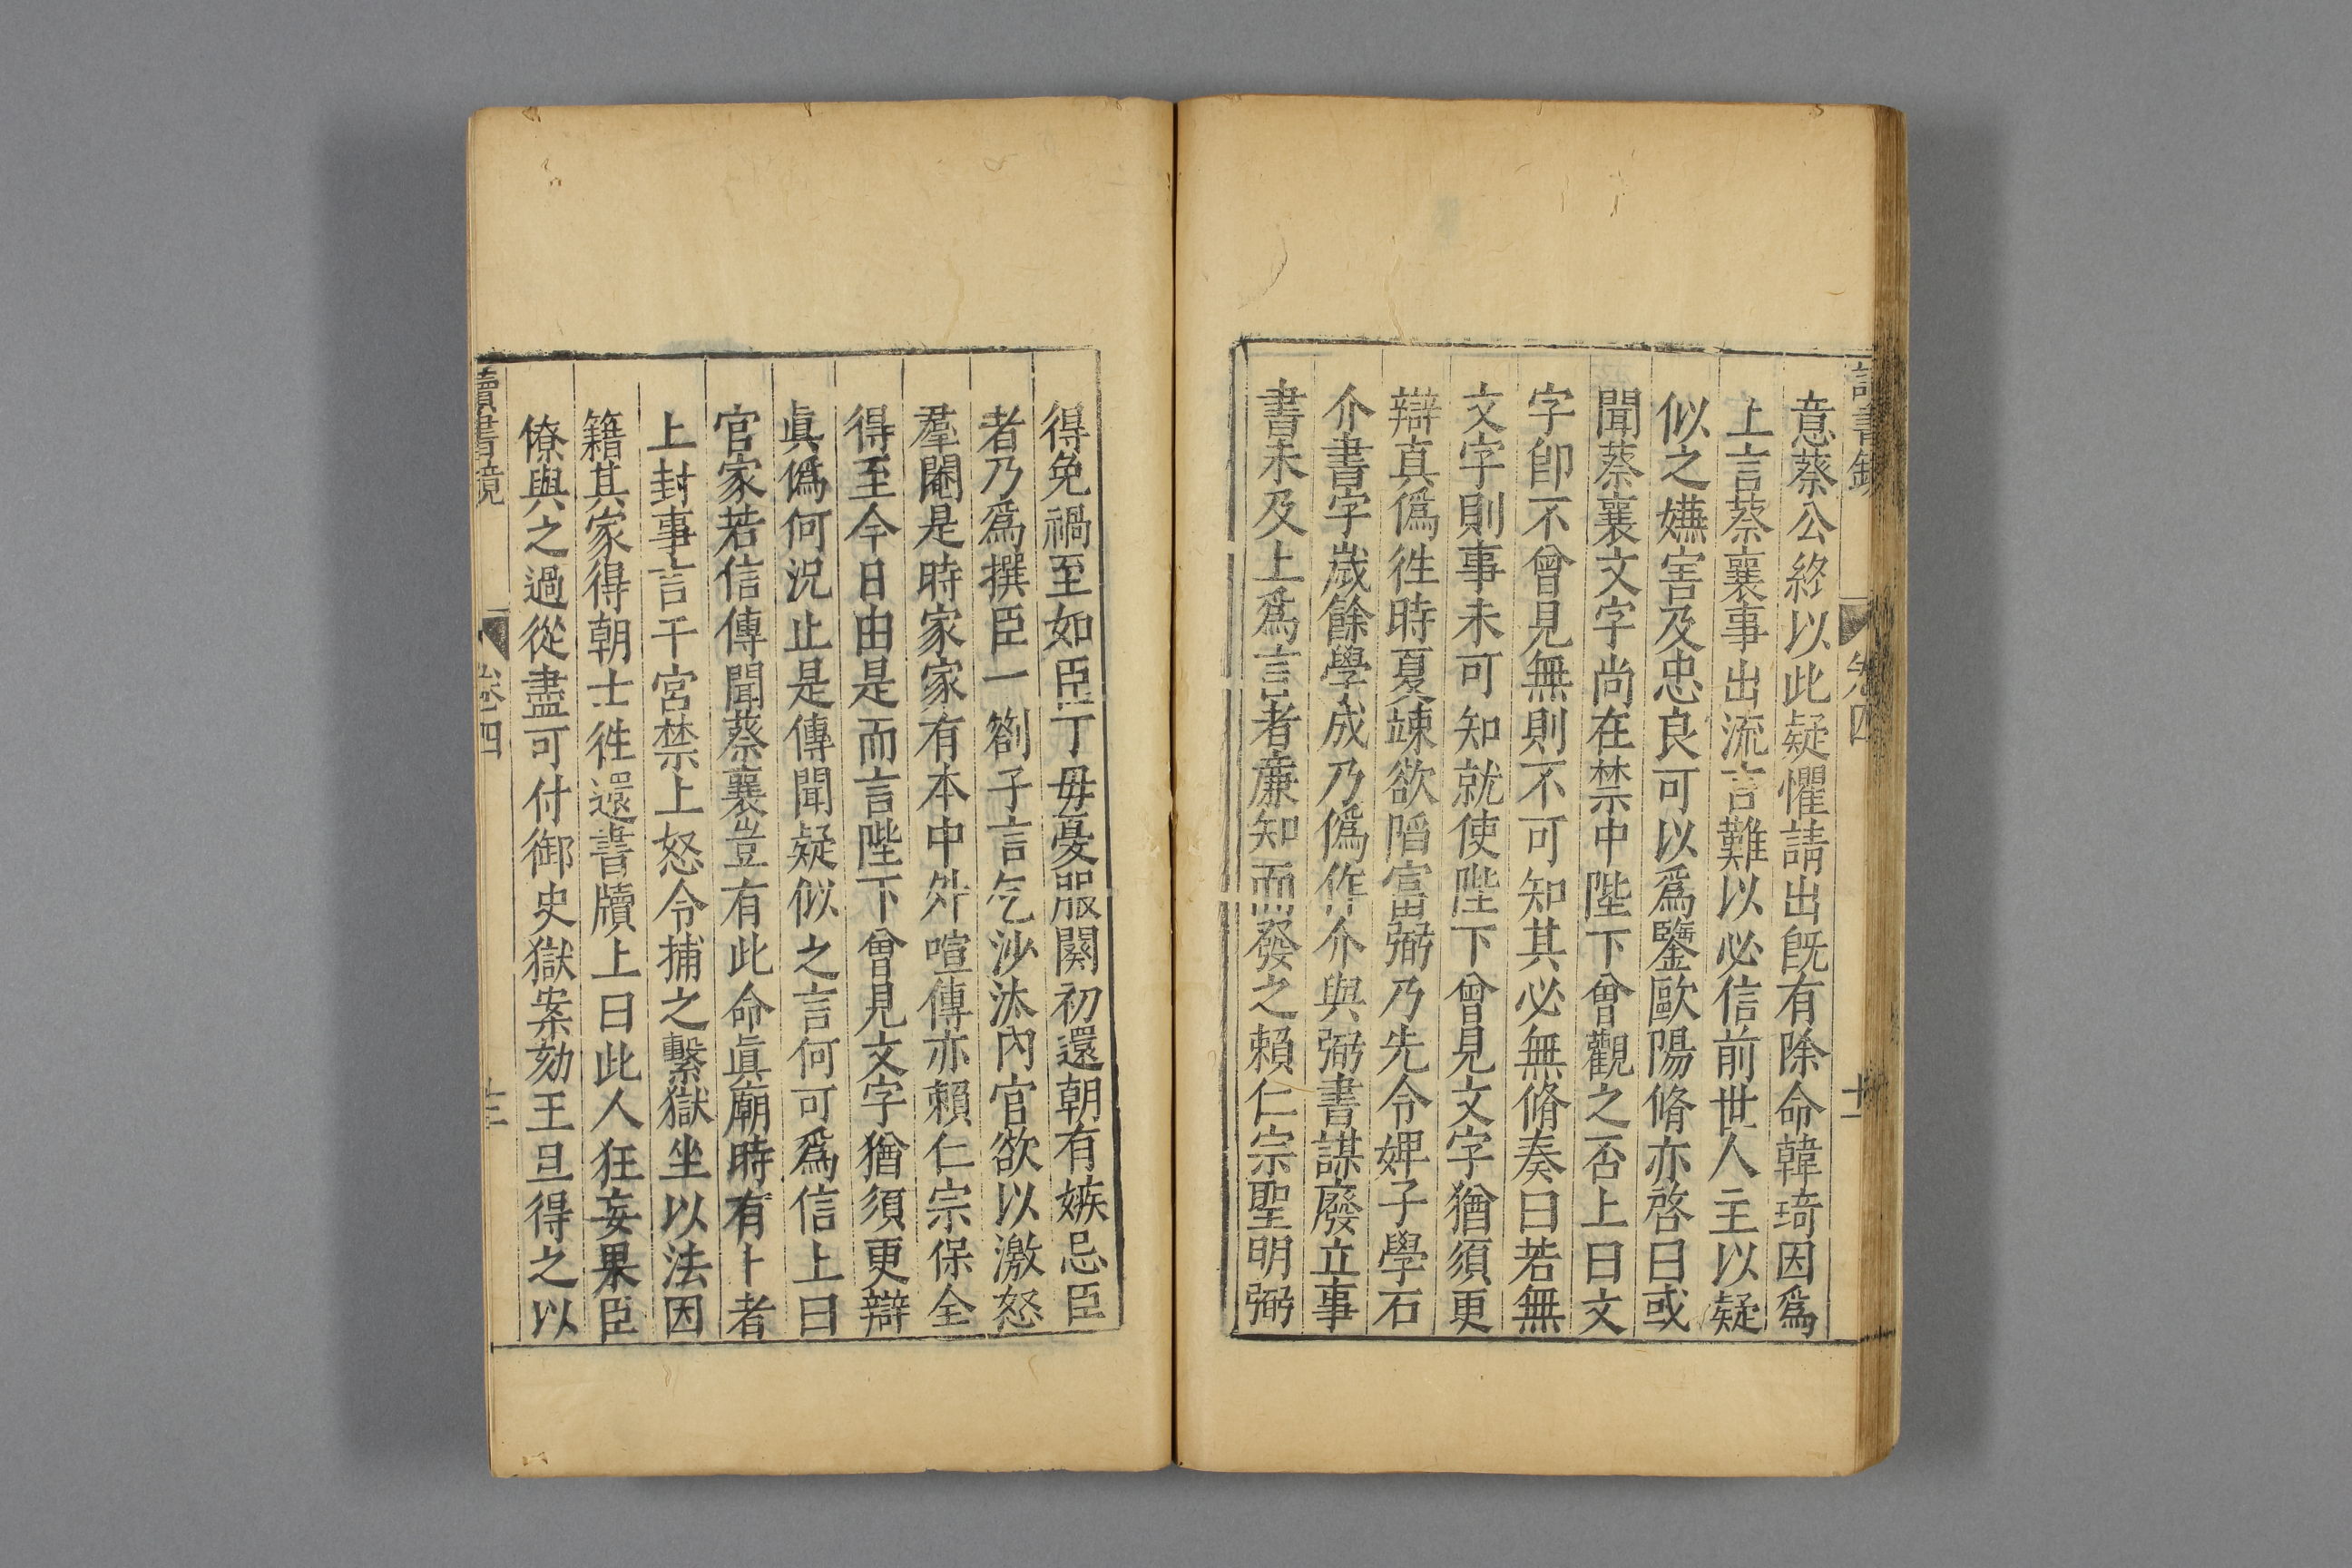 讀書鏡 卷四 十二
意蔡公終以此疑懼請出旣有除命韓琦因爲
上言蔡襄事出流言難以必信前世人主以疑
似之嫌害及忠良可以爲鑒歐陽脩亦啓曰或
聞蔡襄文字尚在禁中陛下曾觀之否上曰文
字卽不曾見無則不可知其必無脩奏曰若無
文字則事未可知就使陛下曾見文字猶須更
辯真僞徃時夏竦欲陷富弼乃先令婢子學石
介書字歲餘學成乃僞作介與弼書謀廢立事
書未及上爲言者廉知而發之賴仁宗聖明弼
得免禍至如臣丁母憂服闋初還朝有嫉忌臣
者乃爲撰臣一劄子言乞沙汰內官欲以激怒
羣閹是時家家有本中外喧傳亦賴仁宗保全
得至今日由是而言陛下曾見文字猶須更辯
眞僞何況止是傳聞疑似之言何可爲信上曰
官家若信傳聞蔡襄豈有此命眞廟時有卜者
上封事言干宮禁上怒令捕之繫獄坐以法因
籍其家得朝士徃還書牘上曰此人狂妄果臣
僚與之過從盡可付御史獄案劾王旦得之以
讀書鏡 卷四 十三